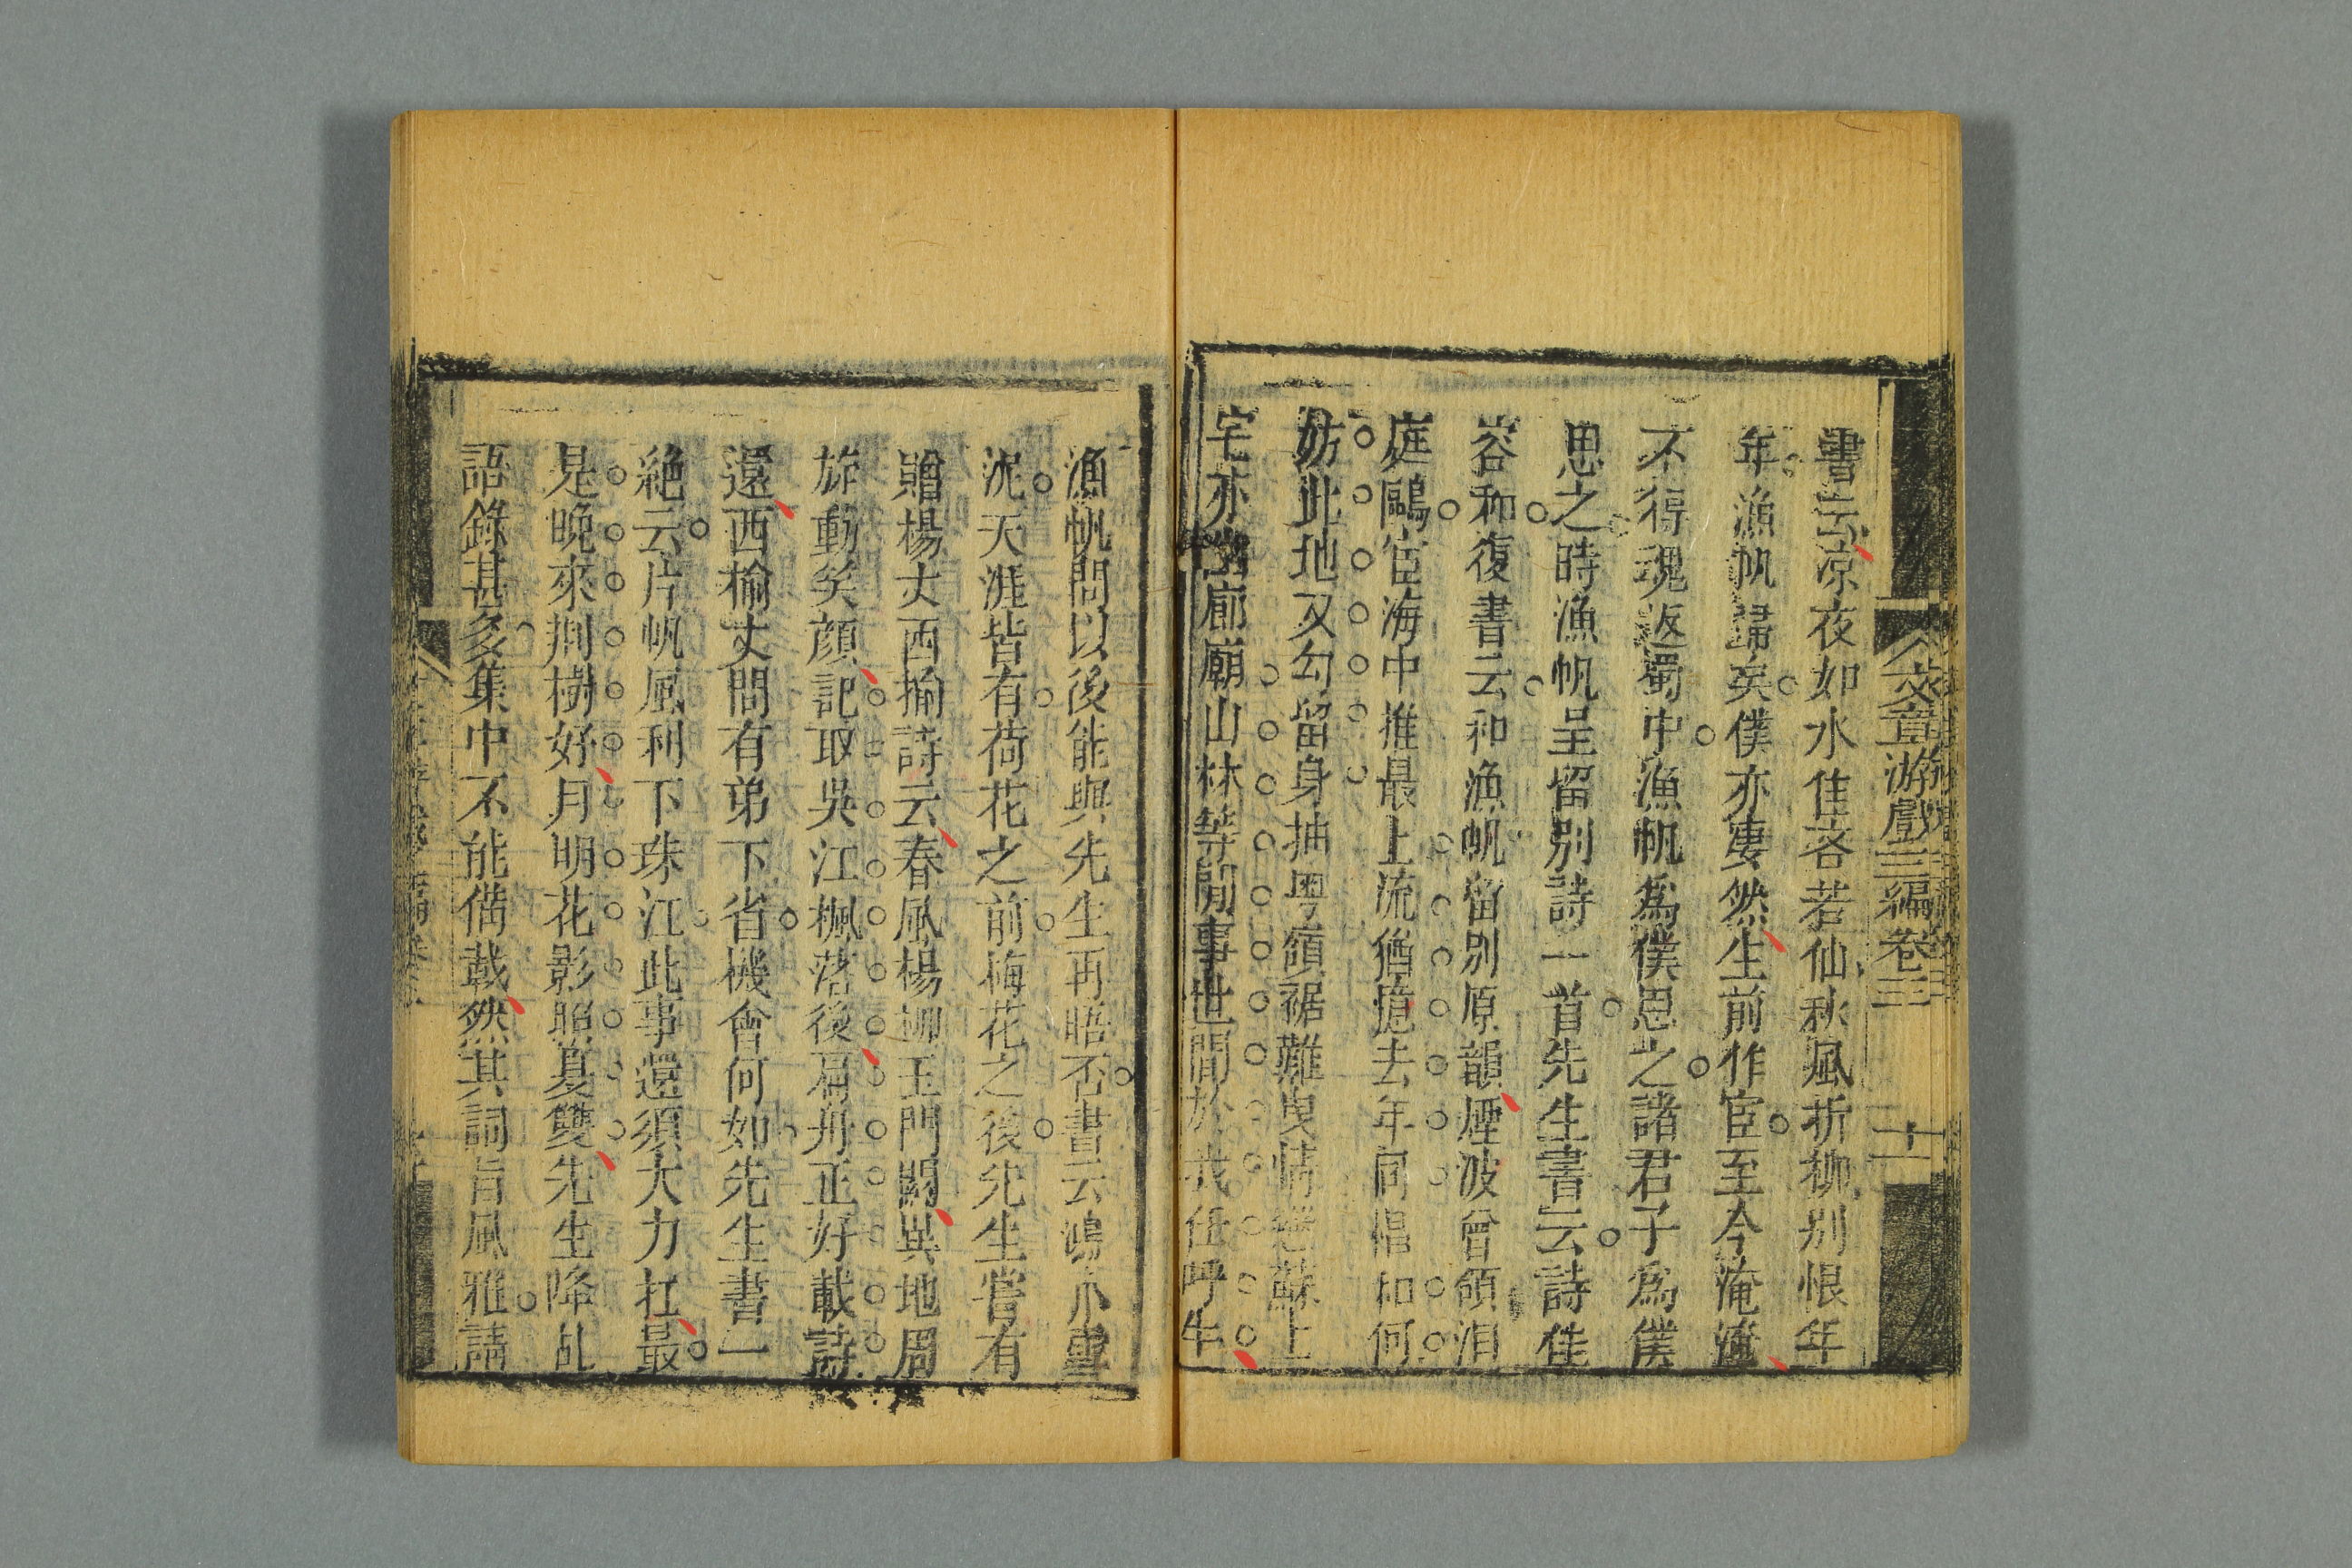 文章游戲三編卷三
十二
書云凉夜如水佳客若仙秋風折柳別恨年
年漁帆歸矣僕亦凄然生前作宦至今淹淹
不得魂返蜀中漁帆為僕思之諸君子為僕
思之時漁帆呈留別詩一首先生書云詩佳
容和復書云和漁帆留別原韻煙波曾領泪
庭鷗宦海中推最上流猶憶去年同倡和何
妨此地又勾留身抽粵嶺裾難曳情繞蘇上
宅亦幽廊廟山林等閒事世間於我任呼牛
漁帆問以後能與先生再晤否書云鴻爪雪
泥天涯皆有荷花之前梅花之後先生嘗有
贈楊丈西揄詩云春風楊柳玉門關異地周
旋動笑顔記取吳江楓落後扁舟正好載詩
還西榆丈問有弟下省機會何如先生書一
絶云片帆風利下珠江此事還須大力扛最
是晚來荆樹好月明花影照雙雙先生降乩
語錄甚多集中不能備載然其詞旨風雅請